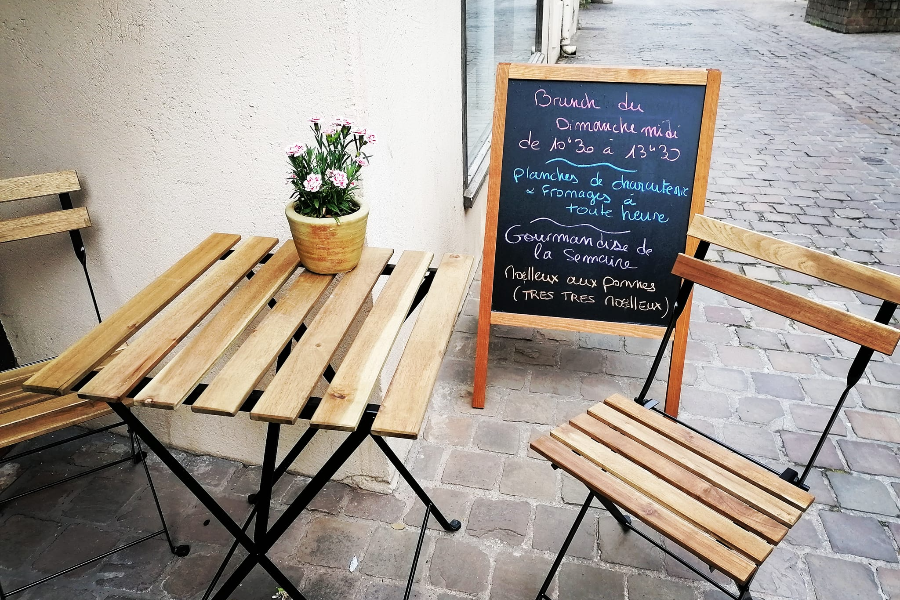 Brunch du
Dimanche midi
de 10h30 à 13h30
planches de charcuterie
& fromages à
toute heure
Gourmandise de
la Semaine
Moëlleux aux pommes
(TRES TRES MOËLLEUX)